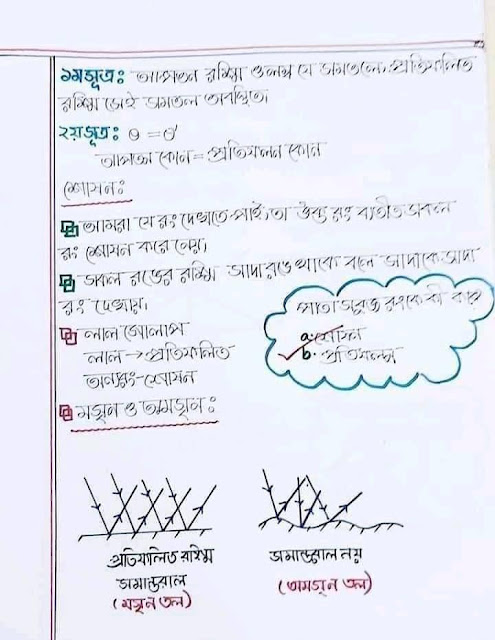 ১মসূত্র: আপতন রশ্মি ও লম্ব যে সমতলে, প্রতিফলিত
রশ্মি সেই সমতলে অবস্থিত।
২য়সূত্র: θ = θ'
আপতন কোন = প্রতিফলন কোন
শোষন:
আমরা যে রং দেখতে পাই তা উক্ত রং ব্যতীত সকল
রং শোষন করে নেয়।
সকল রঙের রশ্মি সাদা রঙে থাকে বলে সাদাকে সাদা
রং দেখায়।
পাতা সবুজ রংকে কী করে
a. শোষন
b. প্রতিফলন
লাল গোলাপ
লাল → প্রতিফলিত
অন্যরং - শোষন
মসৃন ও অমসৃন:
প্রতিফলিত রশ্মি
সমান্তরাল
(মসৃন তল)
সমান্তরাল নয়
(অমসৃন তল)